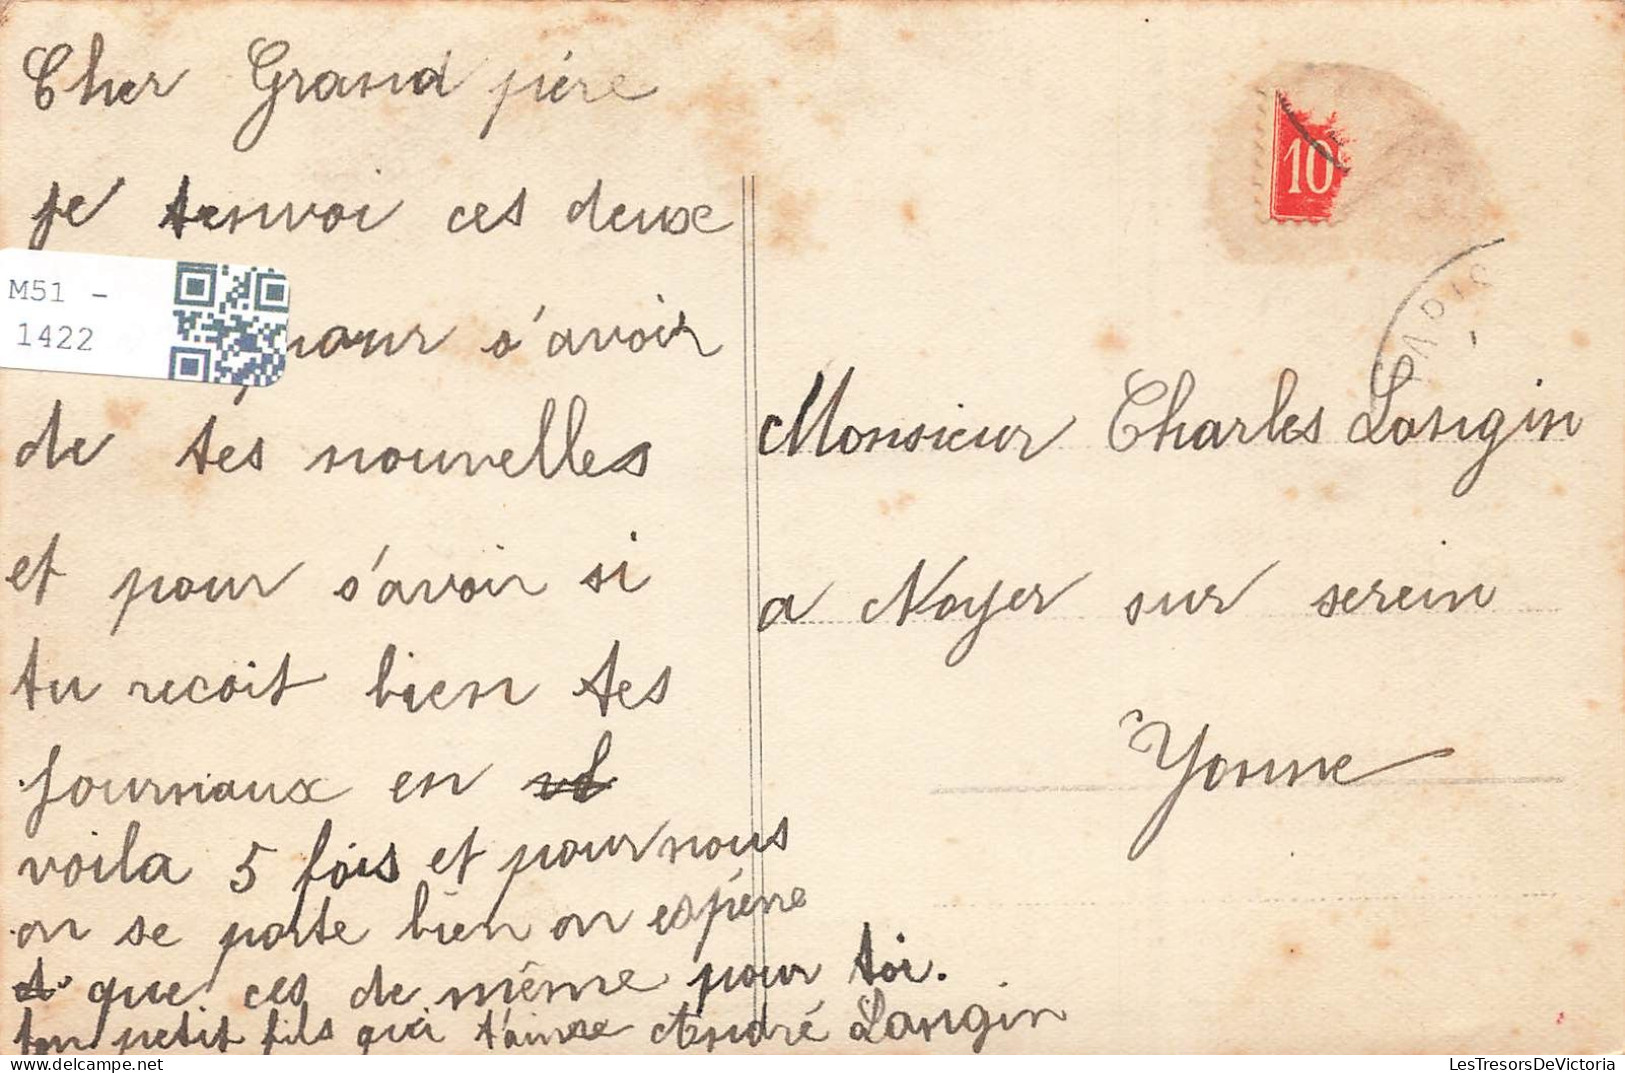 Cher Grand père
je tenvoi ces deux
pour s'avoir
de tes nouvelles
et pour s'avoir si
tu recoit bien tes
journaux en
voila 5 fois et pour nous
on se porte bien on espère
que ces de même pour toi.
ton petit fils qui t'aime André Langin
10
PARIS
Monsieur Charles Langin
a Noyer sur serein
Yonne
M51 -
1422
LesTresorsDeVictoria